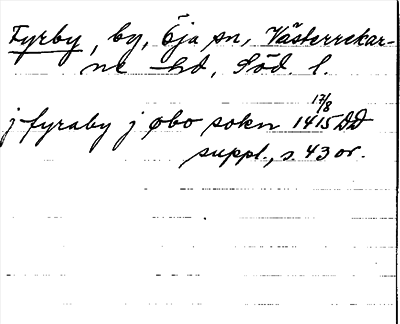 Fyrby, by, Öja sn, Västerrekar-
ne hd, Söd. l.
17/8
j fyraby j øbo sokn 1415 DD
suppl., s. 43 or.